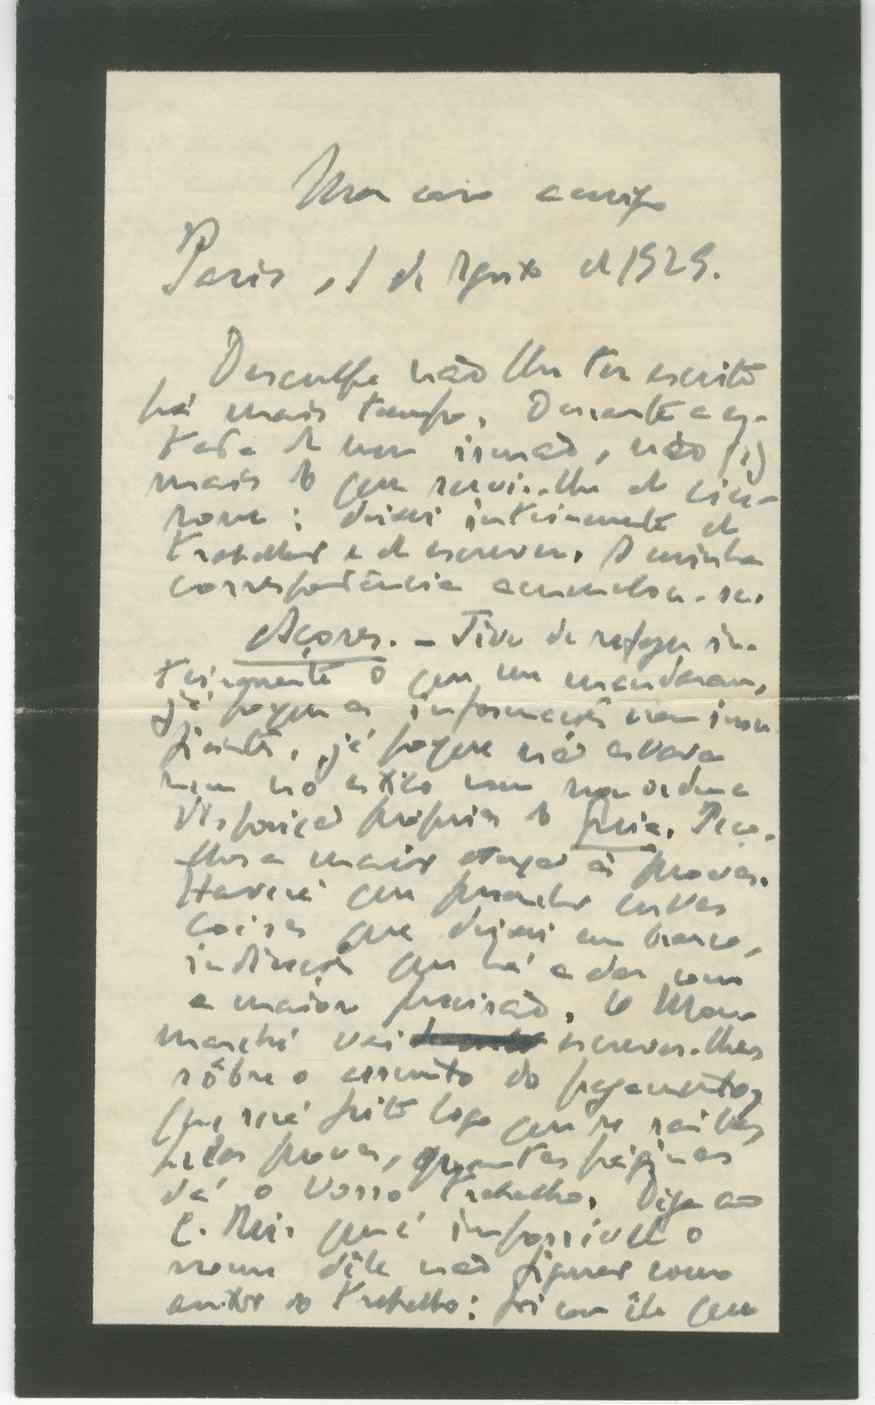 Meu caro amigo
Paris, 1 de Agosto de 1929.
Desculpe não lhe ter escrito
há mais tempo. Durante a es-
tada de meu irmão, não fiz
mais do que servir-lhe de cice-
rone: deixei inteiramente de
trabalhar e de escrever. A minha
correspondência acumulou-se.
Açores. – Tive de refazer in-
teiramente o que me mandaram,
já porque as informações eram insu
ficientes, já porque não estava
nem no estilo nem na ordem e
disposição próprias do Guia. Peço-
lhes a maior atenção às provas.
Haverá que preencher certas
coisas que deixei em branco,
indicações que há a dar com
a maior precisão. O
marché vai escrever-lhes
sôbre o assunto do pagamento,
que será feito logo que se saiba,
pelas provas, quantas páginas
dá o vosso trabalho. Diga ao
C. Reis que é impossível o
nome dêle não figurar como
autor do trabalho: foi com êle que